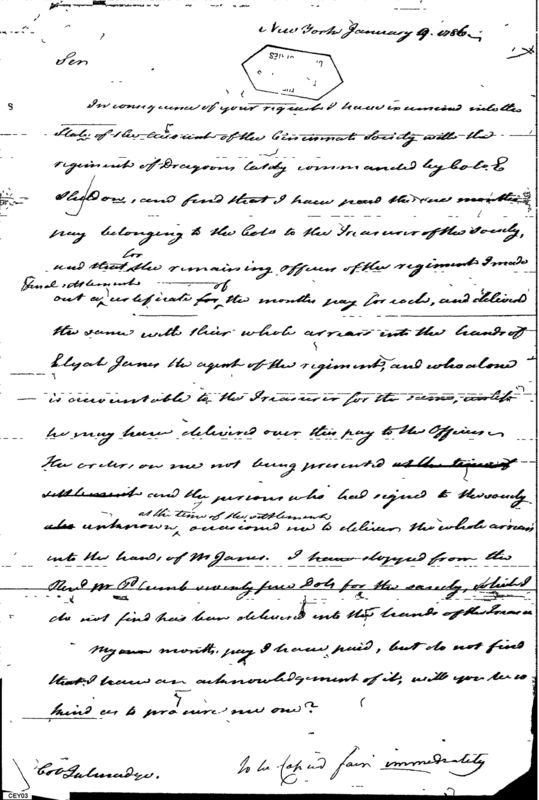 New York January 9. 1786.
Sir
In consequence of your request I have examined into the
State of the account of the Cincinnati Society with the
regiment of Dragoons lately commanded by Colo. E
Sheldon, and find that I have paid the one months
pay belonging to the Colo to the Treasurer of the society,
and that for the remaining officers of the regiment I made
Final settlement
out a certificate for of the months pay for each, and delivered
the same with their whole arrears into the hands of
Elijah Janes the agent of the regiment, and who alone
is accountable to the Treasurer for the same, unless
he may have delivered over this pay to the Officers
The orders on me not being presented at the time of
settlement and the persons who had signed to the society
at the time of the settlement
also unknown, occasioned me to deliver the whole arrears
into the hands of Mr Janes. I have stopped from the
Revd Mr Plumb seventy five Dols for the society, which I
do not find has been delivered into the hands of the Treasr
My own months pay I have paid, but do not find
that I have an acknowledgement of it, will you be so
kind as to procure me one?
Coo Talmadge.
To be Copied fair immediately
CEY03